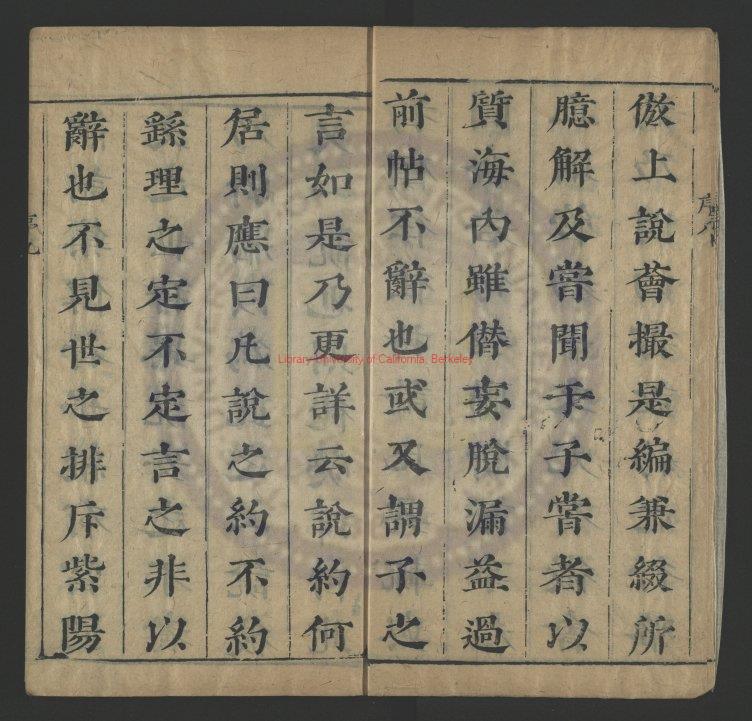 倣上說薈撮是編兼綴所
臆解及嘗聞于子嘗者以
質海內雖僭妄脫漏益過
前帖不辭也或又謂子之
言如是乃更詳云說約何
居則應曰凡說之約不約
繇理之定不定言之非以
辭也不見世之排斥紫陽
序八
序九
Library University of California, Berkeley